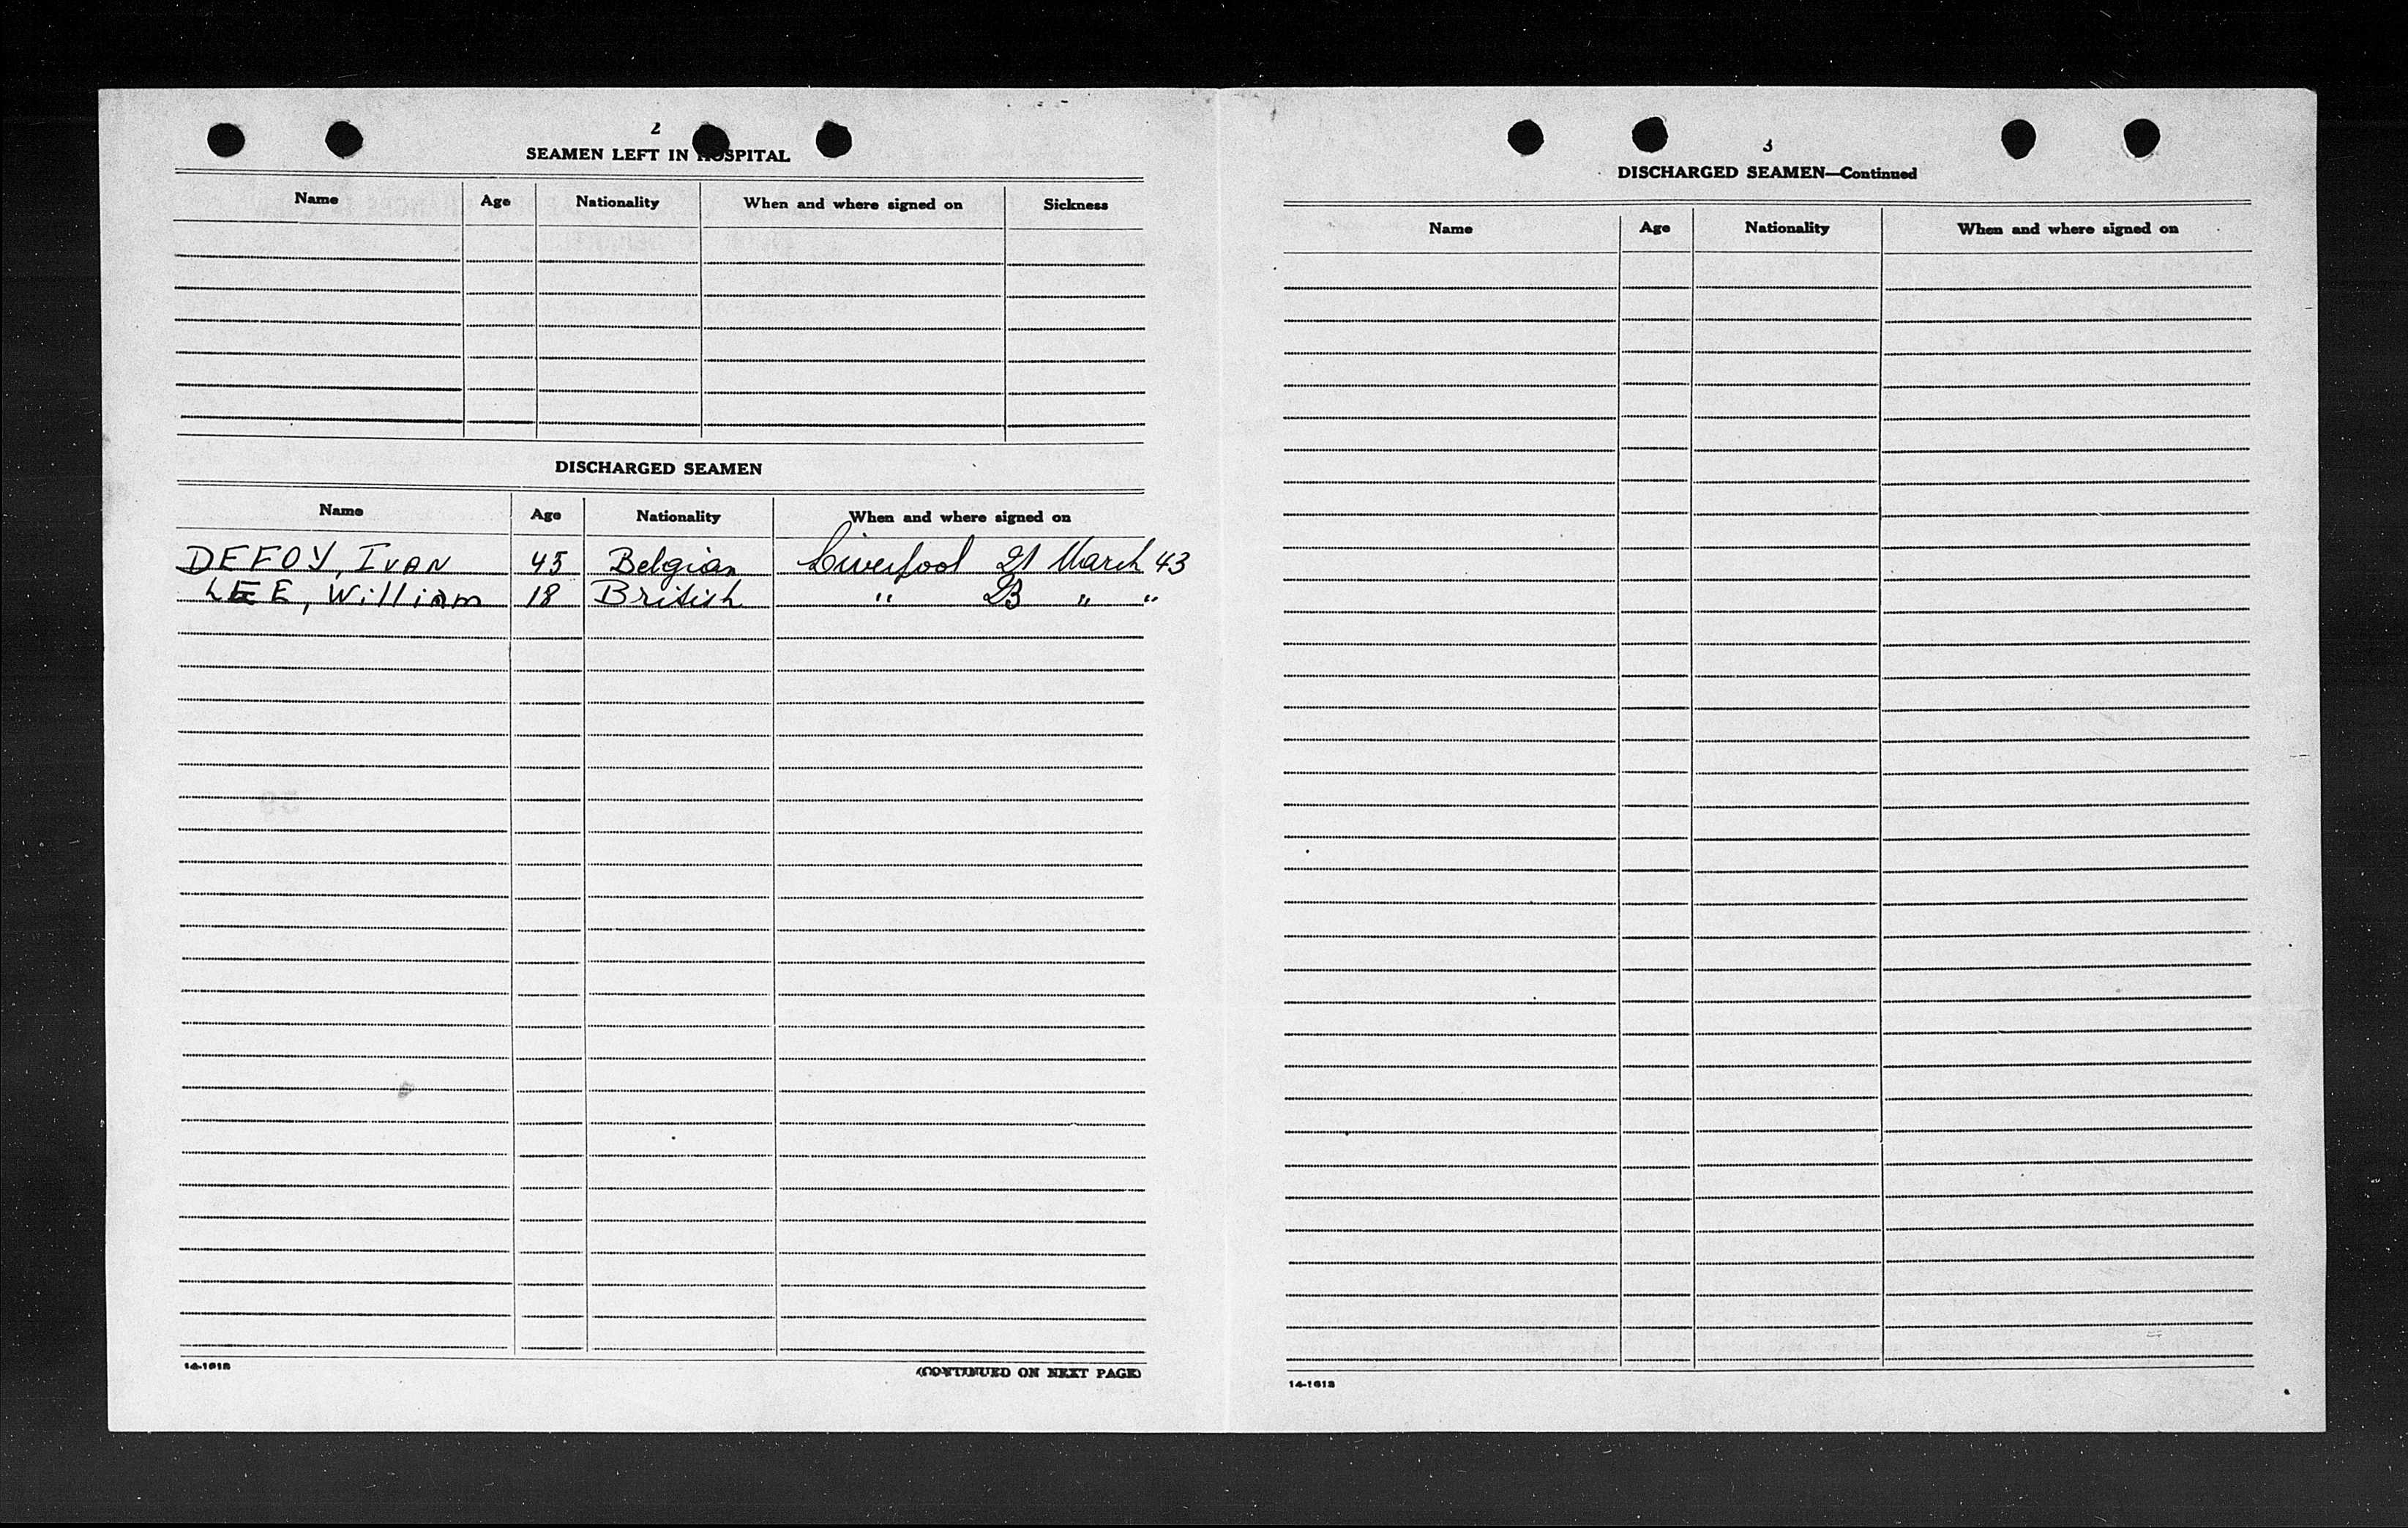 2
SEAMEN LEFT IN HOSPITAL
Name Age Nationality When and where signed on Sickness
DISCHARGED SEAMEN
Name Age Nationality When and where signed on
DEFOY, IVAN 45 Belgian Liverpool 21 March 43
LEE, William 18 British " 23 " "
14-1618
(CONTINUED ON NEXT PAGE)
3
DISCHARGED SEAMEN—Continued
Name Age Nationality When and where signed on
14-1618